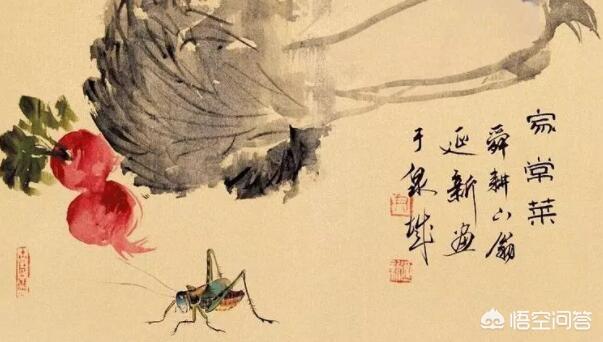 家常菜
舜耕山翁
延新画
于泉城
悟空问答